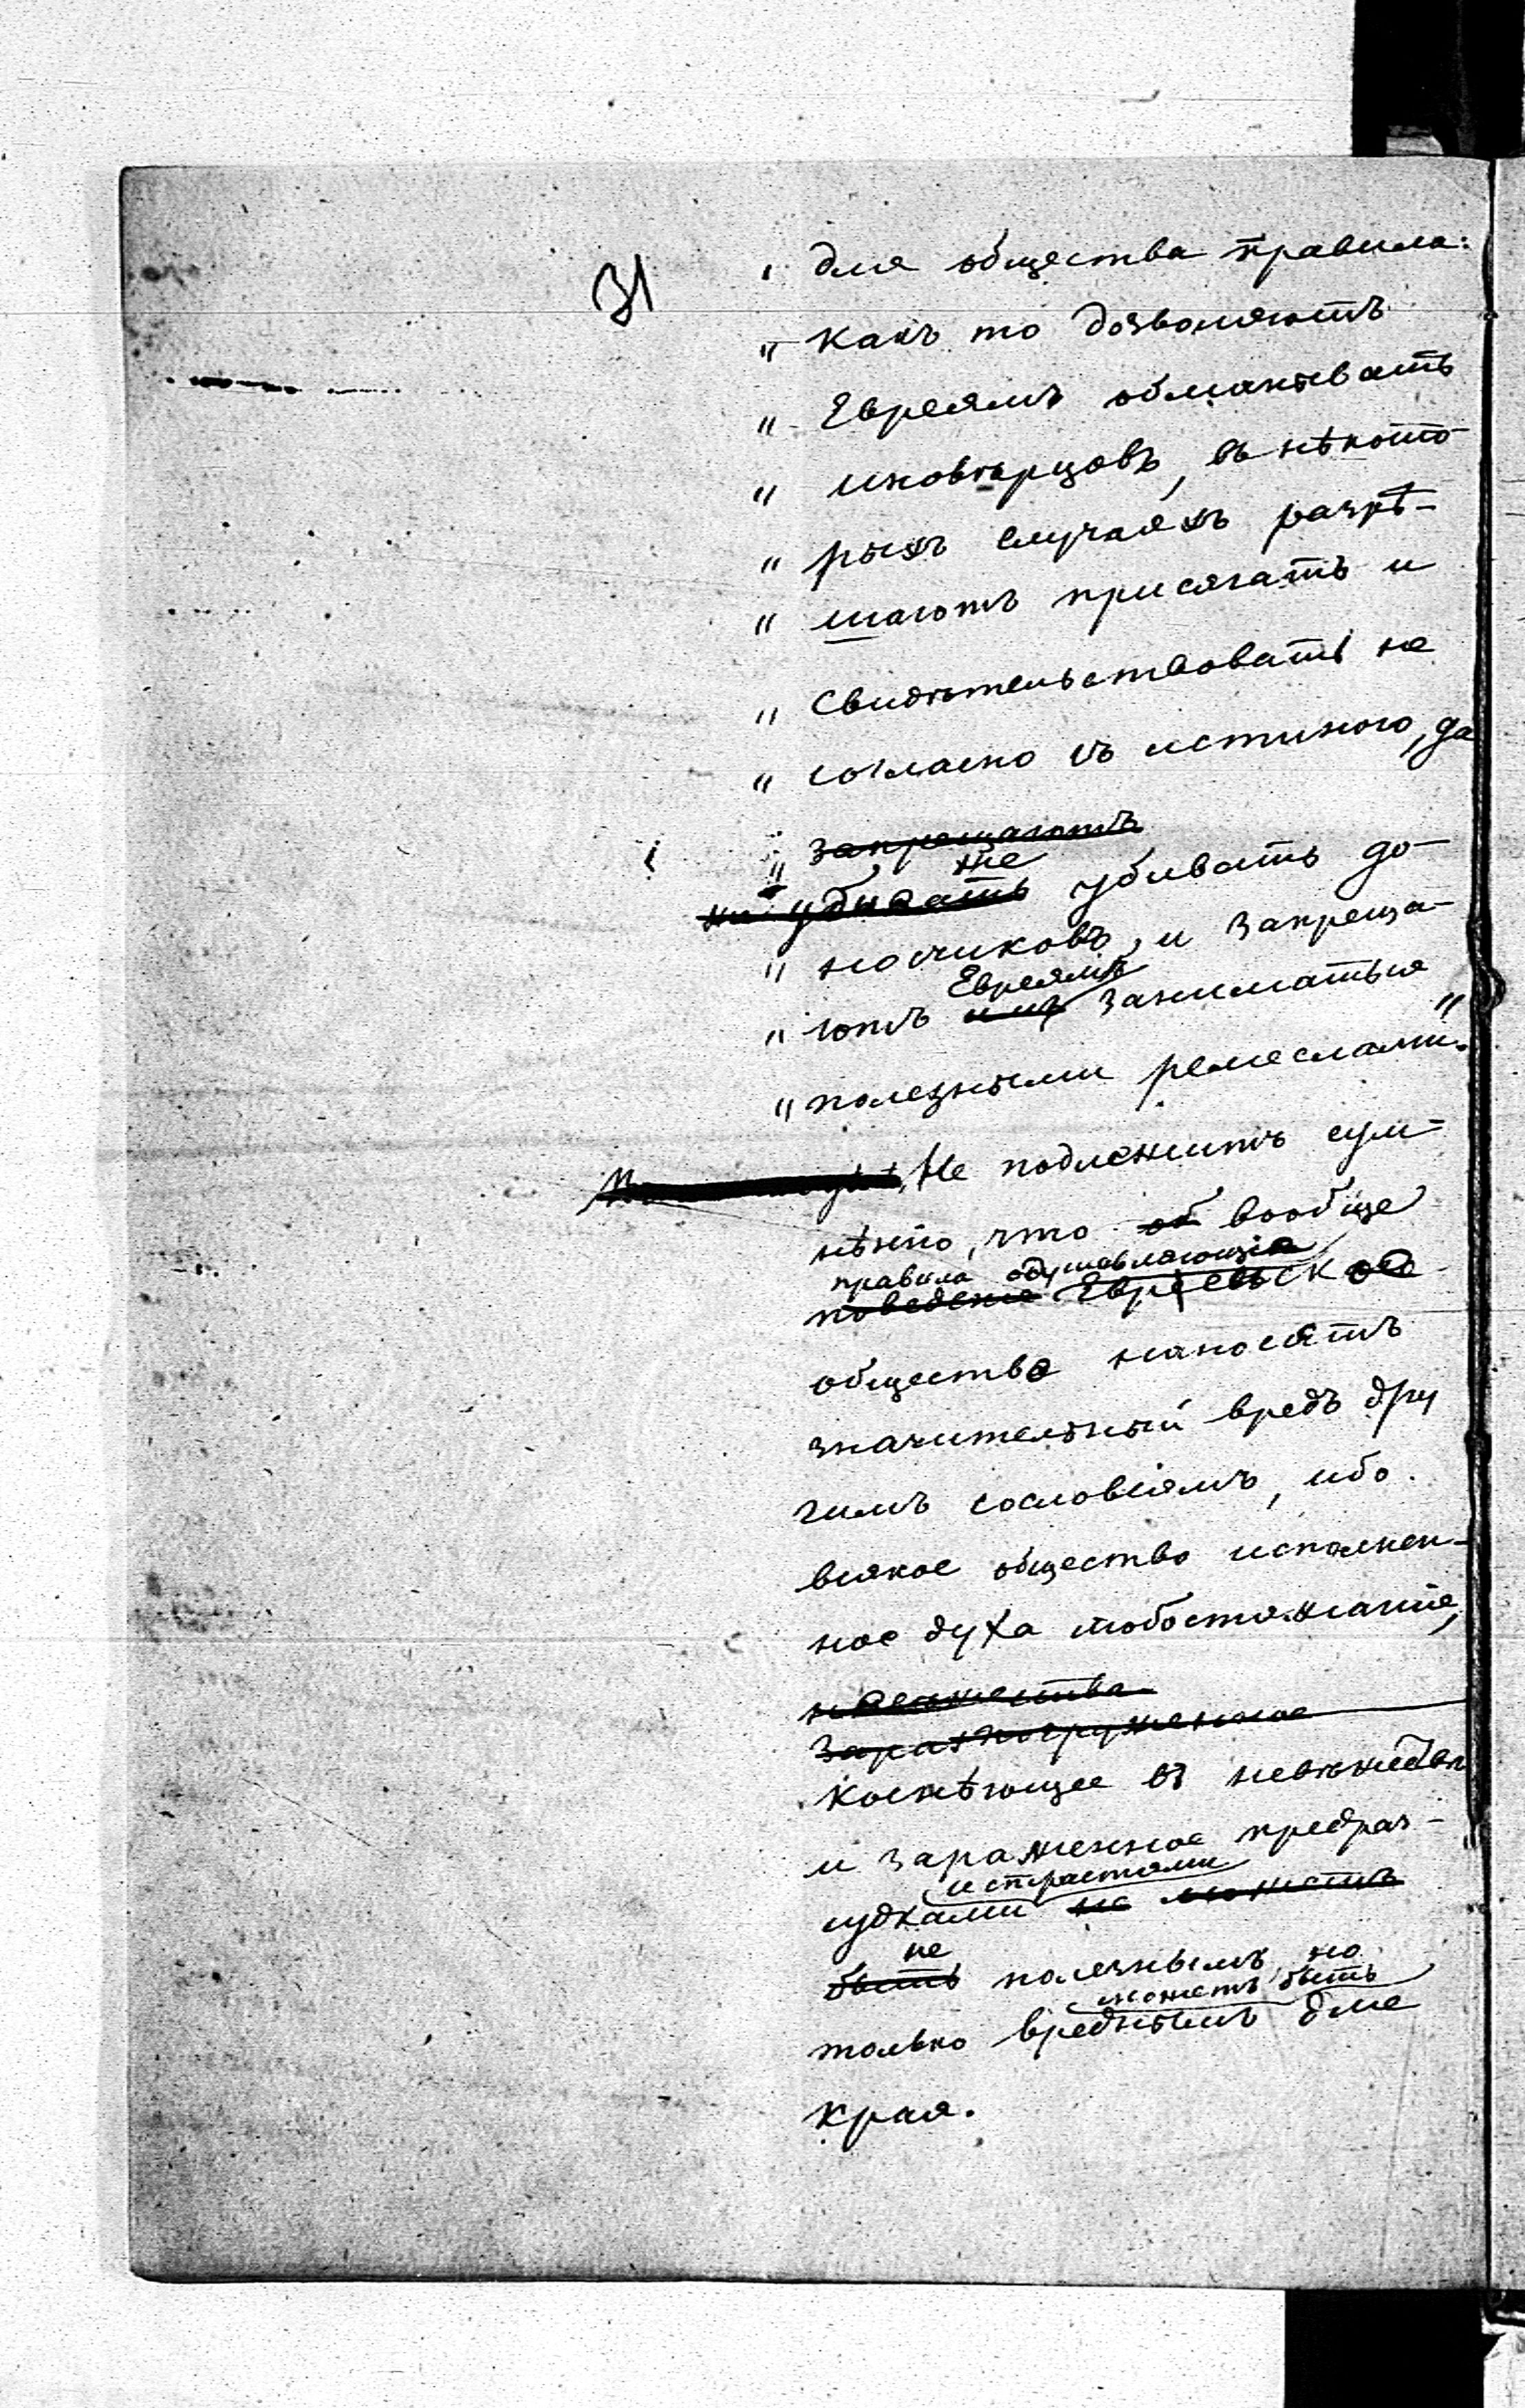 31
„ для общества правила:
„ какъ то дозволяютъ
„ Евреямъ обманывать
„ иновѣрцовъ, въ нѣкото-
„ рыхъ случаяхъ разрѣ-
„ шаютъ присягать и
„ свидѣтельствовать не
„ согласно съ истиною, да
„ запрещаютъ
же
убивать убивать до-
„ носчиковъ, и запреща-
Евреямъ
„ ютъ имъ заниматься
„ полезными ремеслами. „
Не подлежитъ сум-
нѣнію, что об вообще
правила одушевляющія
поведеніе Еврейское
общество наносятъ
значительный вредъ дру
гимъ сословіямъ, ибо
всякое общество исполнен-
ное духа любостяжанія,
невежества
зара погруженное
коснѣющее въ невѣжествѣ
и зараженное предраз-
и страстями
судками не можетъ
не
быть полезнымъ, но
можетъ быть
только вреднымъ для
края.